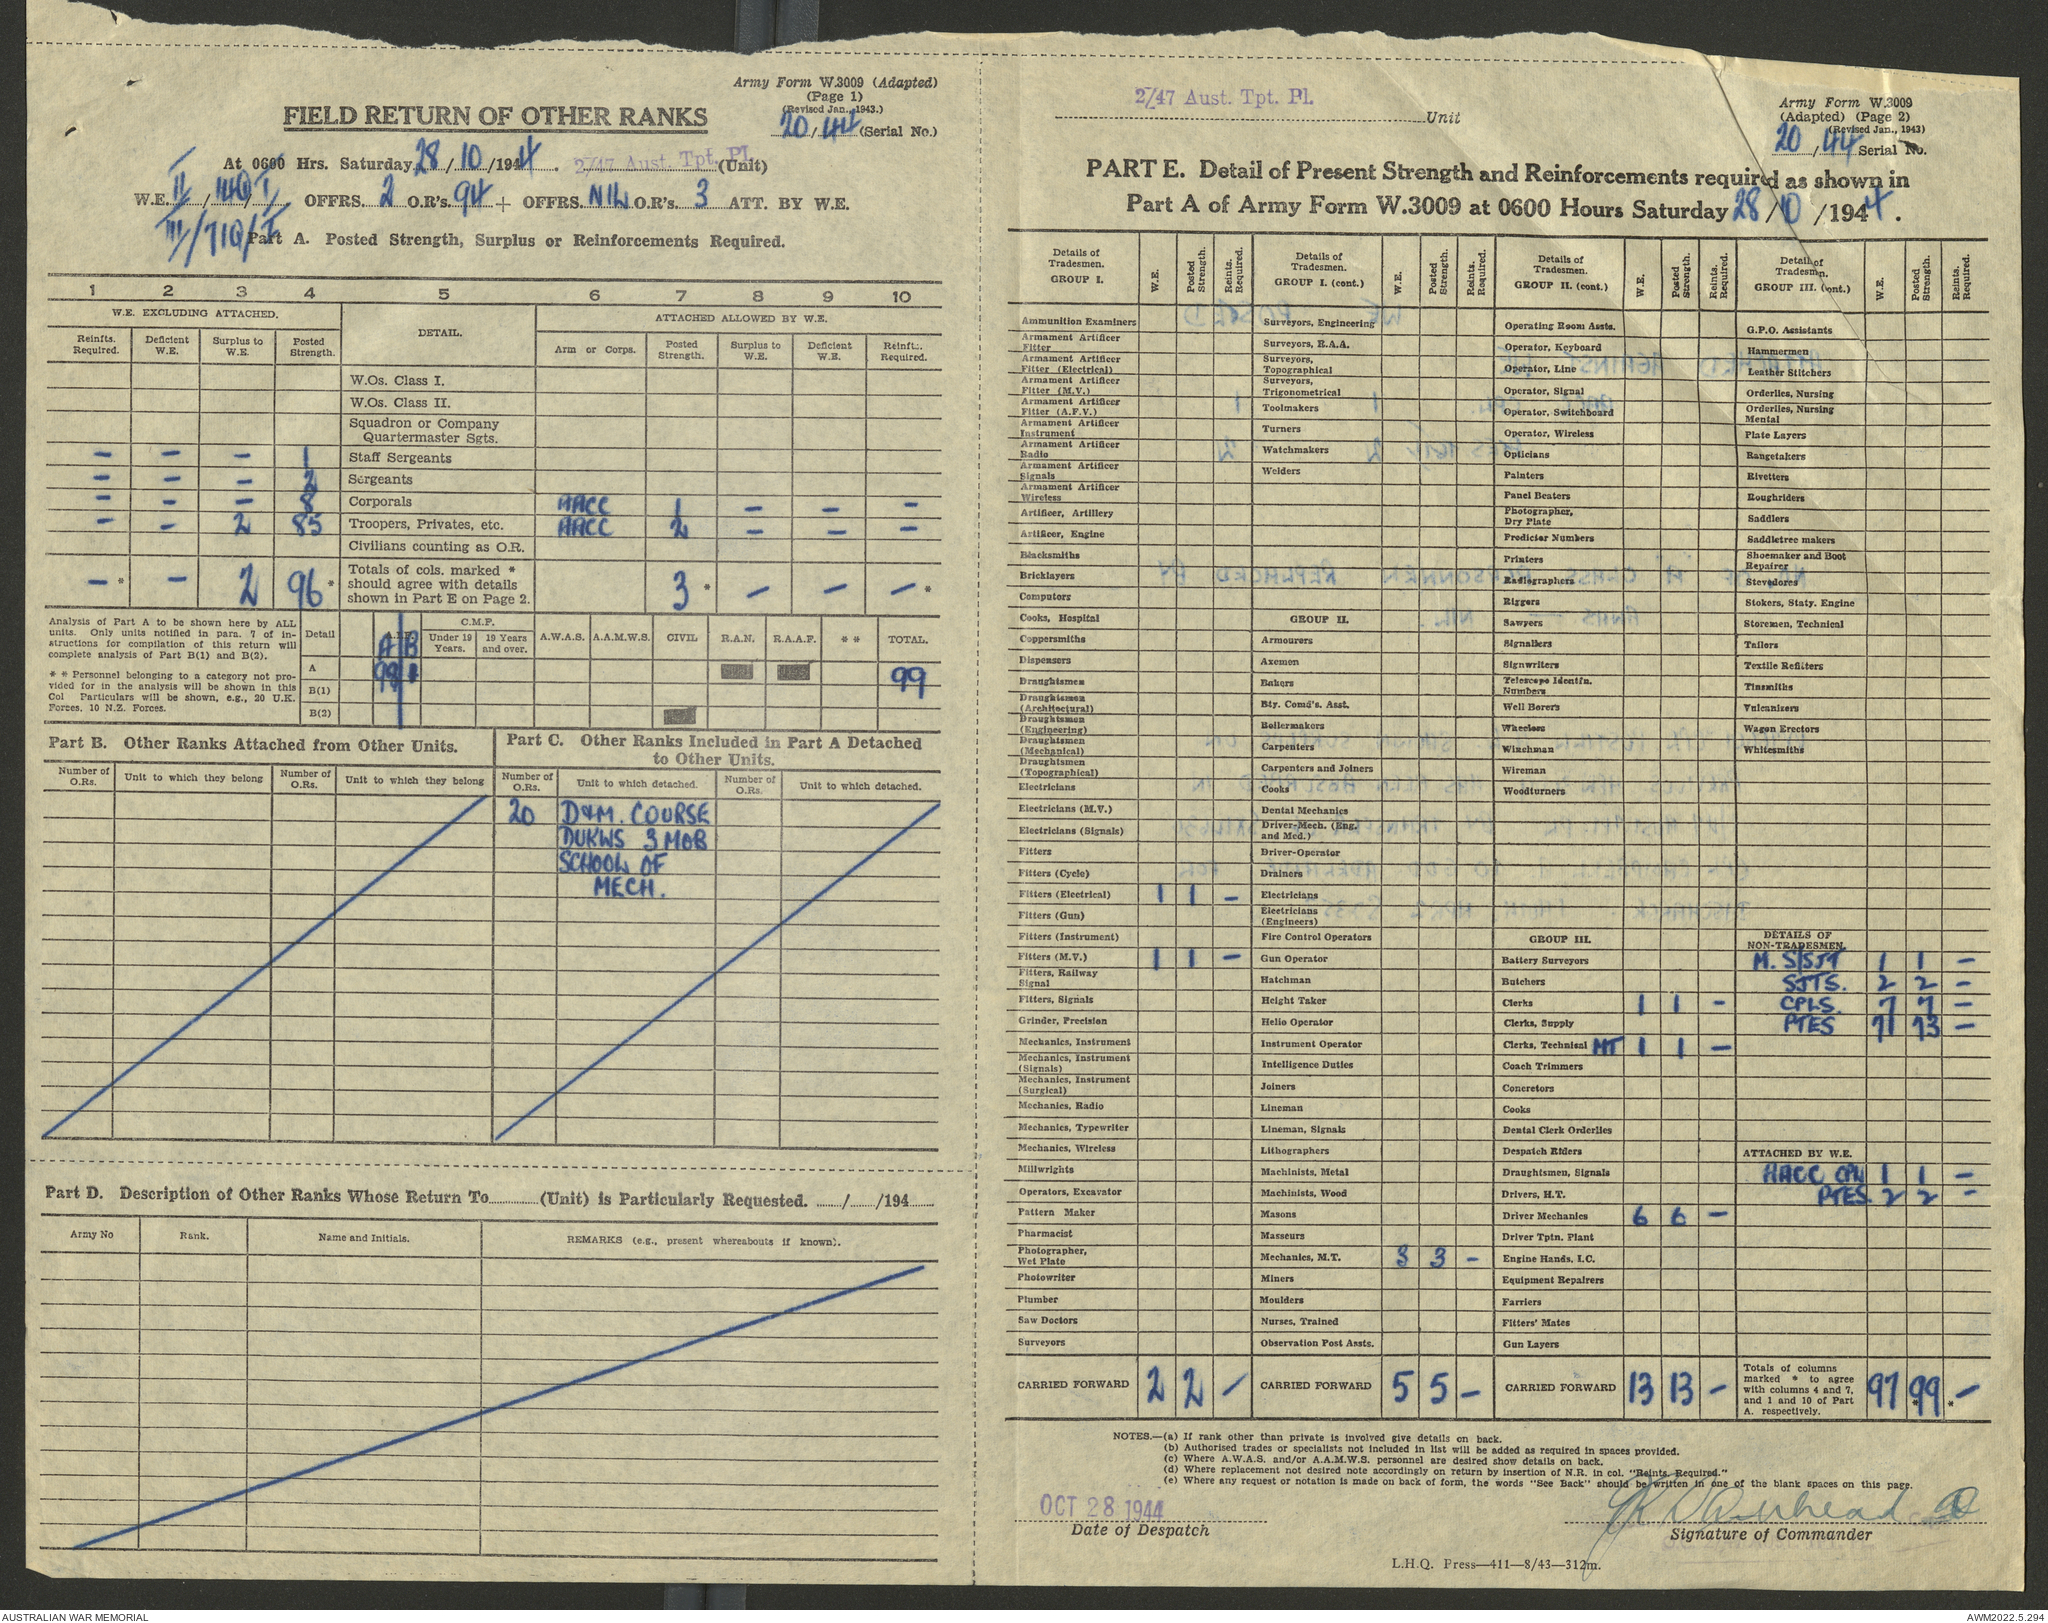 Army Form W.3009 (Adapted)
(Page 1)
(Revised Jan., 1943.)
FIELD RETURN OF OTHER RANKS
20/44 (Serial No.)
At 0600 Hrs. Saturday 28/10/1944. 2/47 Aust. Tpt. Pl. (Unit)
W.E. II/140/I OFFRS. 2 O.R's. 94 + OFFRS. NIL O.R's. 3 ATT. BY W.E.
III/710/I
Part A. Posted Strength, Surplus or Reinforcements Required.
1 2 3 4 5 6 7 8 9 10
W.E. EXCLUDING ATTACHED. DETAIL. ATTACHED ALLOWED BY W.E.
Reinfts. Required. Deficient W.E. Surplus to W.E. Posted Strength. Arm or Corps. Posted Strength. Surplus to W.E. Deficient W.E. Reinfts. Required.
W.Os. Class I.
W.Os. Class II.
Squadron or Company Quartermaster Sgts.
– – – 1 Staff Sergeants
– – – 2 Sergeants
– – – 8 Corporals AACC 1 – – –
– – 2 85 Troopers, Privates, etc. AACC 2 – – –
Civilians counting as O.R.
– * – 2 96 * Totals of cols. marked * should agree with details shown in Part E on Page 2. 3 * – – – *
Analysis of Part A to be shown here by ALL units. Only units notified in para. 7 of instructions for compilation of this return will complete analysis of Part B(1) and B(2).
* * Personnel belonging to a category not provided for in the analysis will be shown in this Col Particulars will be shown, e.g., 20 U.K. Forces, 10 N.Z. Forces.
Detail A.I.F. A B C.M.F. Under 19 Years. 19 Years and over. A.W.A.S. A.A.M.W.S. CIVIL R.A.N. R.A.A.F. * * TOTAL.
A 98 1 99
B(1)
B(2)
Part B. Other Ranks Attached from Other Units.
Number of O.Rs. Unit to which they belong Number of O.Rs. Unit to which they belong
Part C. Other Ranks Included in Part A Detached to Other Units.
Number of O.Rs. Unit to which detached. Number of O.Rs. Unit to which detached.
20 D&M. COURSE
DUKWS 3 MOB
SCHOOL OF
MECH.
Part D. Description of Other Ranks Whose Return To (Unit) is Particularly Requested. / /194
Army No Rank. Name and Initials. REMARKS (e.g., present whereabouts if known).
2/47 Aust. Tpt. Pl. Unit
Army Form W.3009
(Adapted) (Page 2)
(Revised Jan., 1943)
20/44 Serial No.
PART E. Detail of Present Strength and Reinforcements required as shown in
Part A of Army Form W.3009 at 0600 Hours Saturday 28/10/1944.
Details of Tradesmen. GROUP I. W.E. Posted Strength. Reints. Required.
Ammunition Examiners
Armament Artificer Fitter
Armament Artificer Fitter (Electrical)
Armament Artificer Fitter (M.V.)
Armament Artificer Fitter (A.F.V.)
Armament Artificer Instrument
Armament Artificer Radio
Armament Artificer Signals
Armament Artificer Wireless
Artificer, Artillery
Artificer, Engine
Blacksmiths
Bricklayers
Computors
Cooks, Hospital
Coppersmiths
Dispensers
Draughtsmen
Draughtsmen (Architectural)
Draughtsmen (Engineering)
Draughtsmen (Mechanical)
Draughtsmen (Topographical)
Electricians
Electricians (M.V.)
Electricians (Signals)
Fitters
Fitters (Cycle)
Fitters (Electrical) 1 1 –
Fitters (Gun)
Fitters (Instrument)
Fitters (M.V.) 1 1 –
Fitters, Railway Signal
Fitters, Signals
Grinder, Precision
Mechanics, Instrument
Mechanics, Instrument (Signals)
Mechanics, Instrument (Surgical)
Mechanics, Radio
Mechanics, Typewriter
Mechanics, Wireless
Millwrights
Operators, Excavator
Pattern Maker
Pharmacist
Photographer, Wet Plate
Photowriter
Plumber
Saw Doctors
Surveyors
CARRIED FORWARD 2 2 –
Details of Tradesmen. GROUP I. (cont.) W.E. Posted Strength. Reints. Required.
Surveyors, Engineering
Surveyors, R.A.A.
Surveyors, Topographical
Surveyors, Trigonometrical
Toolmakers
Turners
Watchmakers
Welders
GROUP II.
Armourers
Axemen
Bakers
Bty. Comd's. Asst.
Boilermakers
Carpenters
Carpenters and Joiners
Cooks
Dental Mechanics
Driver-Mech. (Eng. and Med.)
Driver-Operator
Drainers
Electricians
Electricians (Engineers)
Fire Control Operators
Gun Operator
Hatchman
Height Taker
Helio Operator
Instrument Operator
Intelligence Duties
Joiners
Lineman
Lineman, Signals
Lithographers
Machinists, Metal
Machinists, Wood
Masons
Masseurs
Mechanics, M.T. 3 3 –
Miners
Moulders
Nurses, Trained
Observation Post Assts.
CARRIED FORWARD 5 5 –
Details of Tradesmen. GROUP II. (cont.) W.E. Posted Strength. Reints. Required.
Operating Room Assts.
Operator, Keyboard
Operator, Line
Operator, Signal
Operator, Switchboard
Operator, Wireless
Opticians
Painters
Panel Beaters
Photographer, Dry Plate
Predictor Numbers
Printers
Radiographers
Riggers
Sawyers
Signallers
Signwriters
Telescope Identfn. Numbers
Well Borers
Wheelers
Winchman
Wireman
Woodturners
GROUP III.
Battery Surveyors
Butchers
Clerks 1 1 –
Clerks, Supply
Clerks, Technical MT 1 1 –
Coach Trimmers
Concretors
Cooks
Dental Clerk Orderlies
Despatch Riders
Draughtsmen, Signals
Drivers, H.T.
Driver Mechanics 6 6 –
Driver Tptn. Plant
Engine Hands, I.C.
Equipment Repairers
Farriers
Fitters' Mates
Gun Layers
CARRIED FORWARD 13 13 –
Details of Tradesmen. GROUP III. (cont.) W.E. Posted Strength. Reints. Required.
G.P.O. Assistants
Hammermen
Leather Stitchers
Orderlies, Nursing
Orderlies, Nursing Mental
Plate Layers
Rangetakers
Rivetters
Roughriders
Saddlers
Saddletree makers
Shoemaker and Boot Repairer
Stevedores
Stokers, Staty. Engine
Storemen, Technical
Tailors
Textile Refitters
Tinsmiths
Vulcanizers
Wagon Erectors
Whitesmiths
DETAILS OF NON-TRADESMEN.
M. S/SJT 1 1 –
SJTS. 2 2 –
CPLS. 7 7 –
PTES 71 73 –
ATTACHED BY W.E.
AACC CPL 1 1 –
PTES 2 2 –
Totals of columns marked * to agree with columns 4 and 7, and 1 and 10 of Part A. respectively. 97 99 * – *
NOTES.—(a) If rank other than private is involved give details on back.
(b) Authorised trades or specialists not included in list will be added as required in spaces provided.
(c) Where A.W.A.S. and/or A.A.M.W.S. personnel are desired show details on back.
(d) Where replacement not desired note accordingly on return by insertion of N.R. in col. "Reints. Required."
(e) Where any request or notation is made on back of form, the words "See Back" should be written in one of the blank spaces on this page.
OCT 28 1944
Date of Despatch
Signature of Commander
L.H.Q. Press—411—8/43—312m.
AUSTRALIAN WAR MEMORIAL
AWM2022.5.294